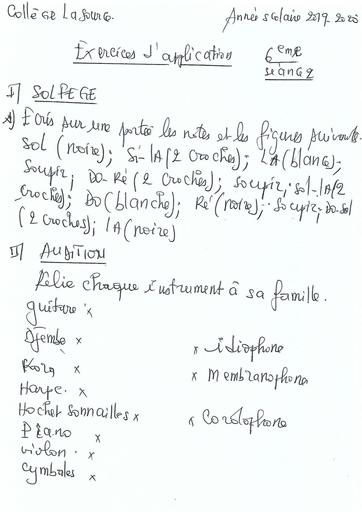 Collège La Source.
Année scolaire 2019 2020
Exercices d'application 6eme
séance 2
I) SOLFEGE
A) Ecris sur une portée les notes et les figures suivante.
Sol (noire); Si-lA (2 croches); LA (blanc);
Soupir; DO-Ré (2 croches); soupir; sol-lA (2
croches); DO (blanche); Ré (noire); soupir; Do-Sol
(2 croches); lA (noire)
II) AUDITION
Relie chaque instrument à sa famille.
guitare x
Djembe x
x idiophone
Kora x
x Membranophone
Harpe. x
Hochet sonnailles x
x Cordophone
Piano x
violon. x
cymbales x